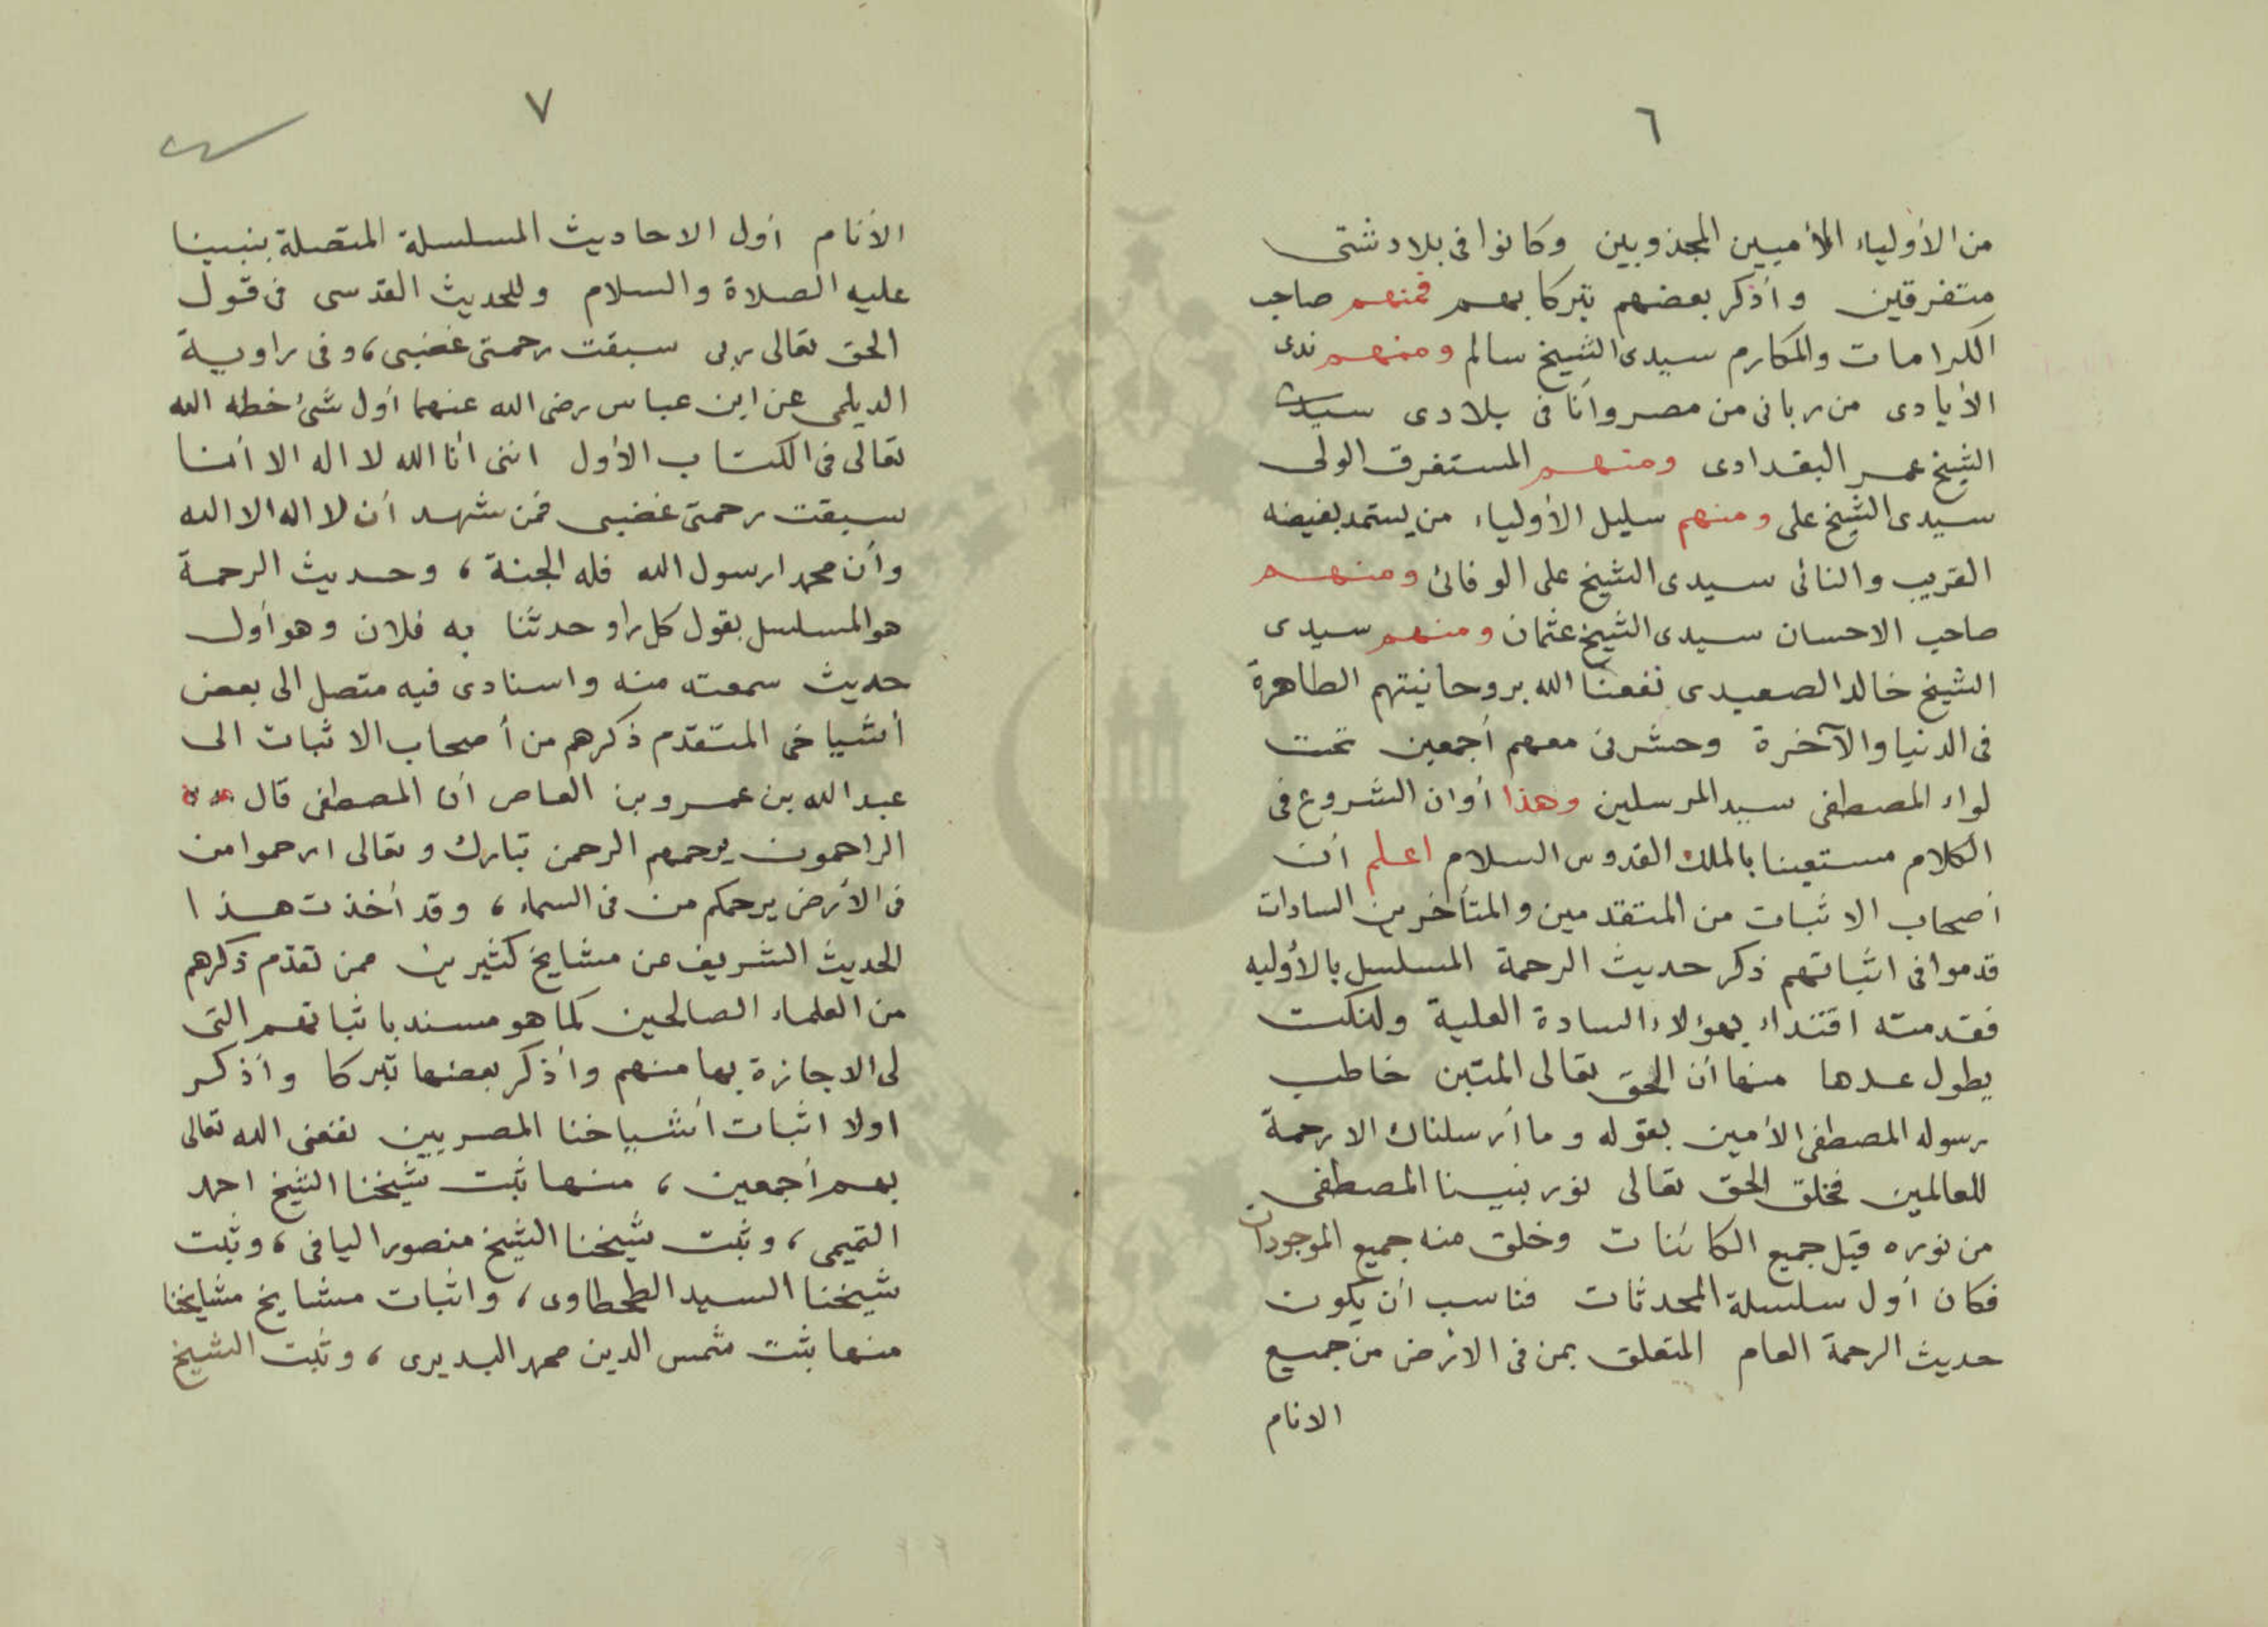 ٦
من الأولياء الأميين المجذوبين وكانوا فى بلاد شتى
متفرقين وأذكر بعضهم تبركا بهم فمنهم صاحب
الكرامات والمكارم سيدى الشيخ سالم ومنهم ندى
الأيادى من ربانى من مصر وأنا فى بلادى سيدى
الشيخ عمر البغدادى ومنهم المستغرق الولى
سيدى الشيخ على ومنهم سليل الأولياء من يستمد بفيضه
القريب والنائى سيدى الشيخ على الوفائى ومنهم
صاحب الاحسان سيدى الشيخ عثمان ومنهم سيدى
الشيخ خالد الصعيدى نفعنا الله بروحانيتهم الطاهرة
فى الدنيا والآخرة وحشرنى معهم أجمعين تحت
لواء المصطفى سيد المرسلين وهذا أوان الشروع فى
الكلام مستعينا بالملك القدوس السلام اعلم أن
أصحاب الاثبات من المتقدمين والمتأخرين السادات
قدموا فى اثباتهم ذكر حديث الرحمة المسلسل بالأوليه
فقدمته اقتداء بهؤلاء السادة العلية ولنكت
يطول عدها منها أن الحق تعالى المتين خاطب
رسوله المصطفى الأمين بقوله وما أرسلناك الا رحمة
للعالمين فخلق الحق تعالى نور نبينا المصطفى
من نوره قبل جميع الكائنات وخلق منه جميع الموجودات
فكان أول سلسلة المحدثات فناسب أن يكون
حديث الرحمة العام المتعلق بمن فى الارض من جميع
الانام
٧
الأنام أول الاحاديث المسلسلة المتصلة بنبينا
عليه الصلاة والسلام وللحديث القدسى فى قول
الحق تعالى ربى سبقت رحمتى غضبى، وفى راوية
الديلمى عن ابن عباس رضى الله عنهما أول شئ خطه الله
تعالى فى الكتاب الأول اننى أنا الله لا اله الا أنا
سبقت رحمتى غضبى فمن شهد أن لا اله الا الله
وأن محمدا رسول الله فله الجنة، وحديث الرحمة
هو المسلسل بقول كل راو حدثنا به فلان وهو أول
حديث سمعته منه واسنادى فيه متصل الى بعض
أشياخى المتقدم ذكرهم من أصحاب الاثبات الى
عبد الله بن عمرو بن العاص أن المصطفى قال
الراحمون يرحمهم الرحمن تبارك وتعالى ارحموا من
فى الأرض يرحمكم من فى السماء، وقد أخذت هذا
الحديث الشريف عن مشايخ كثيرين ممن تقدم ذكرهم
من العلماء الصالحين كما هو مسند باثباتهم التى
لى الاجازة بها منهم وأذكر بعضها تبركا وأذكر
اولا اثبات أشياخنا المصريين نفعنى الله تعالى
بهم أجمعين، منها ثبت شيخنا الشيخ احمد
التميمى، وثبت شيخنا الشيخ منصور اليافى، وثبت
شيخنا السيد الطحطاوى، واثبات مشايخ مشايخنا
منها ثبت شمس الدين محمد البديرى، وثبت الشيخ